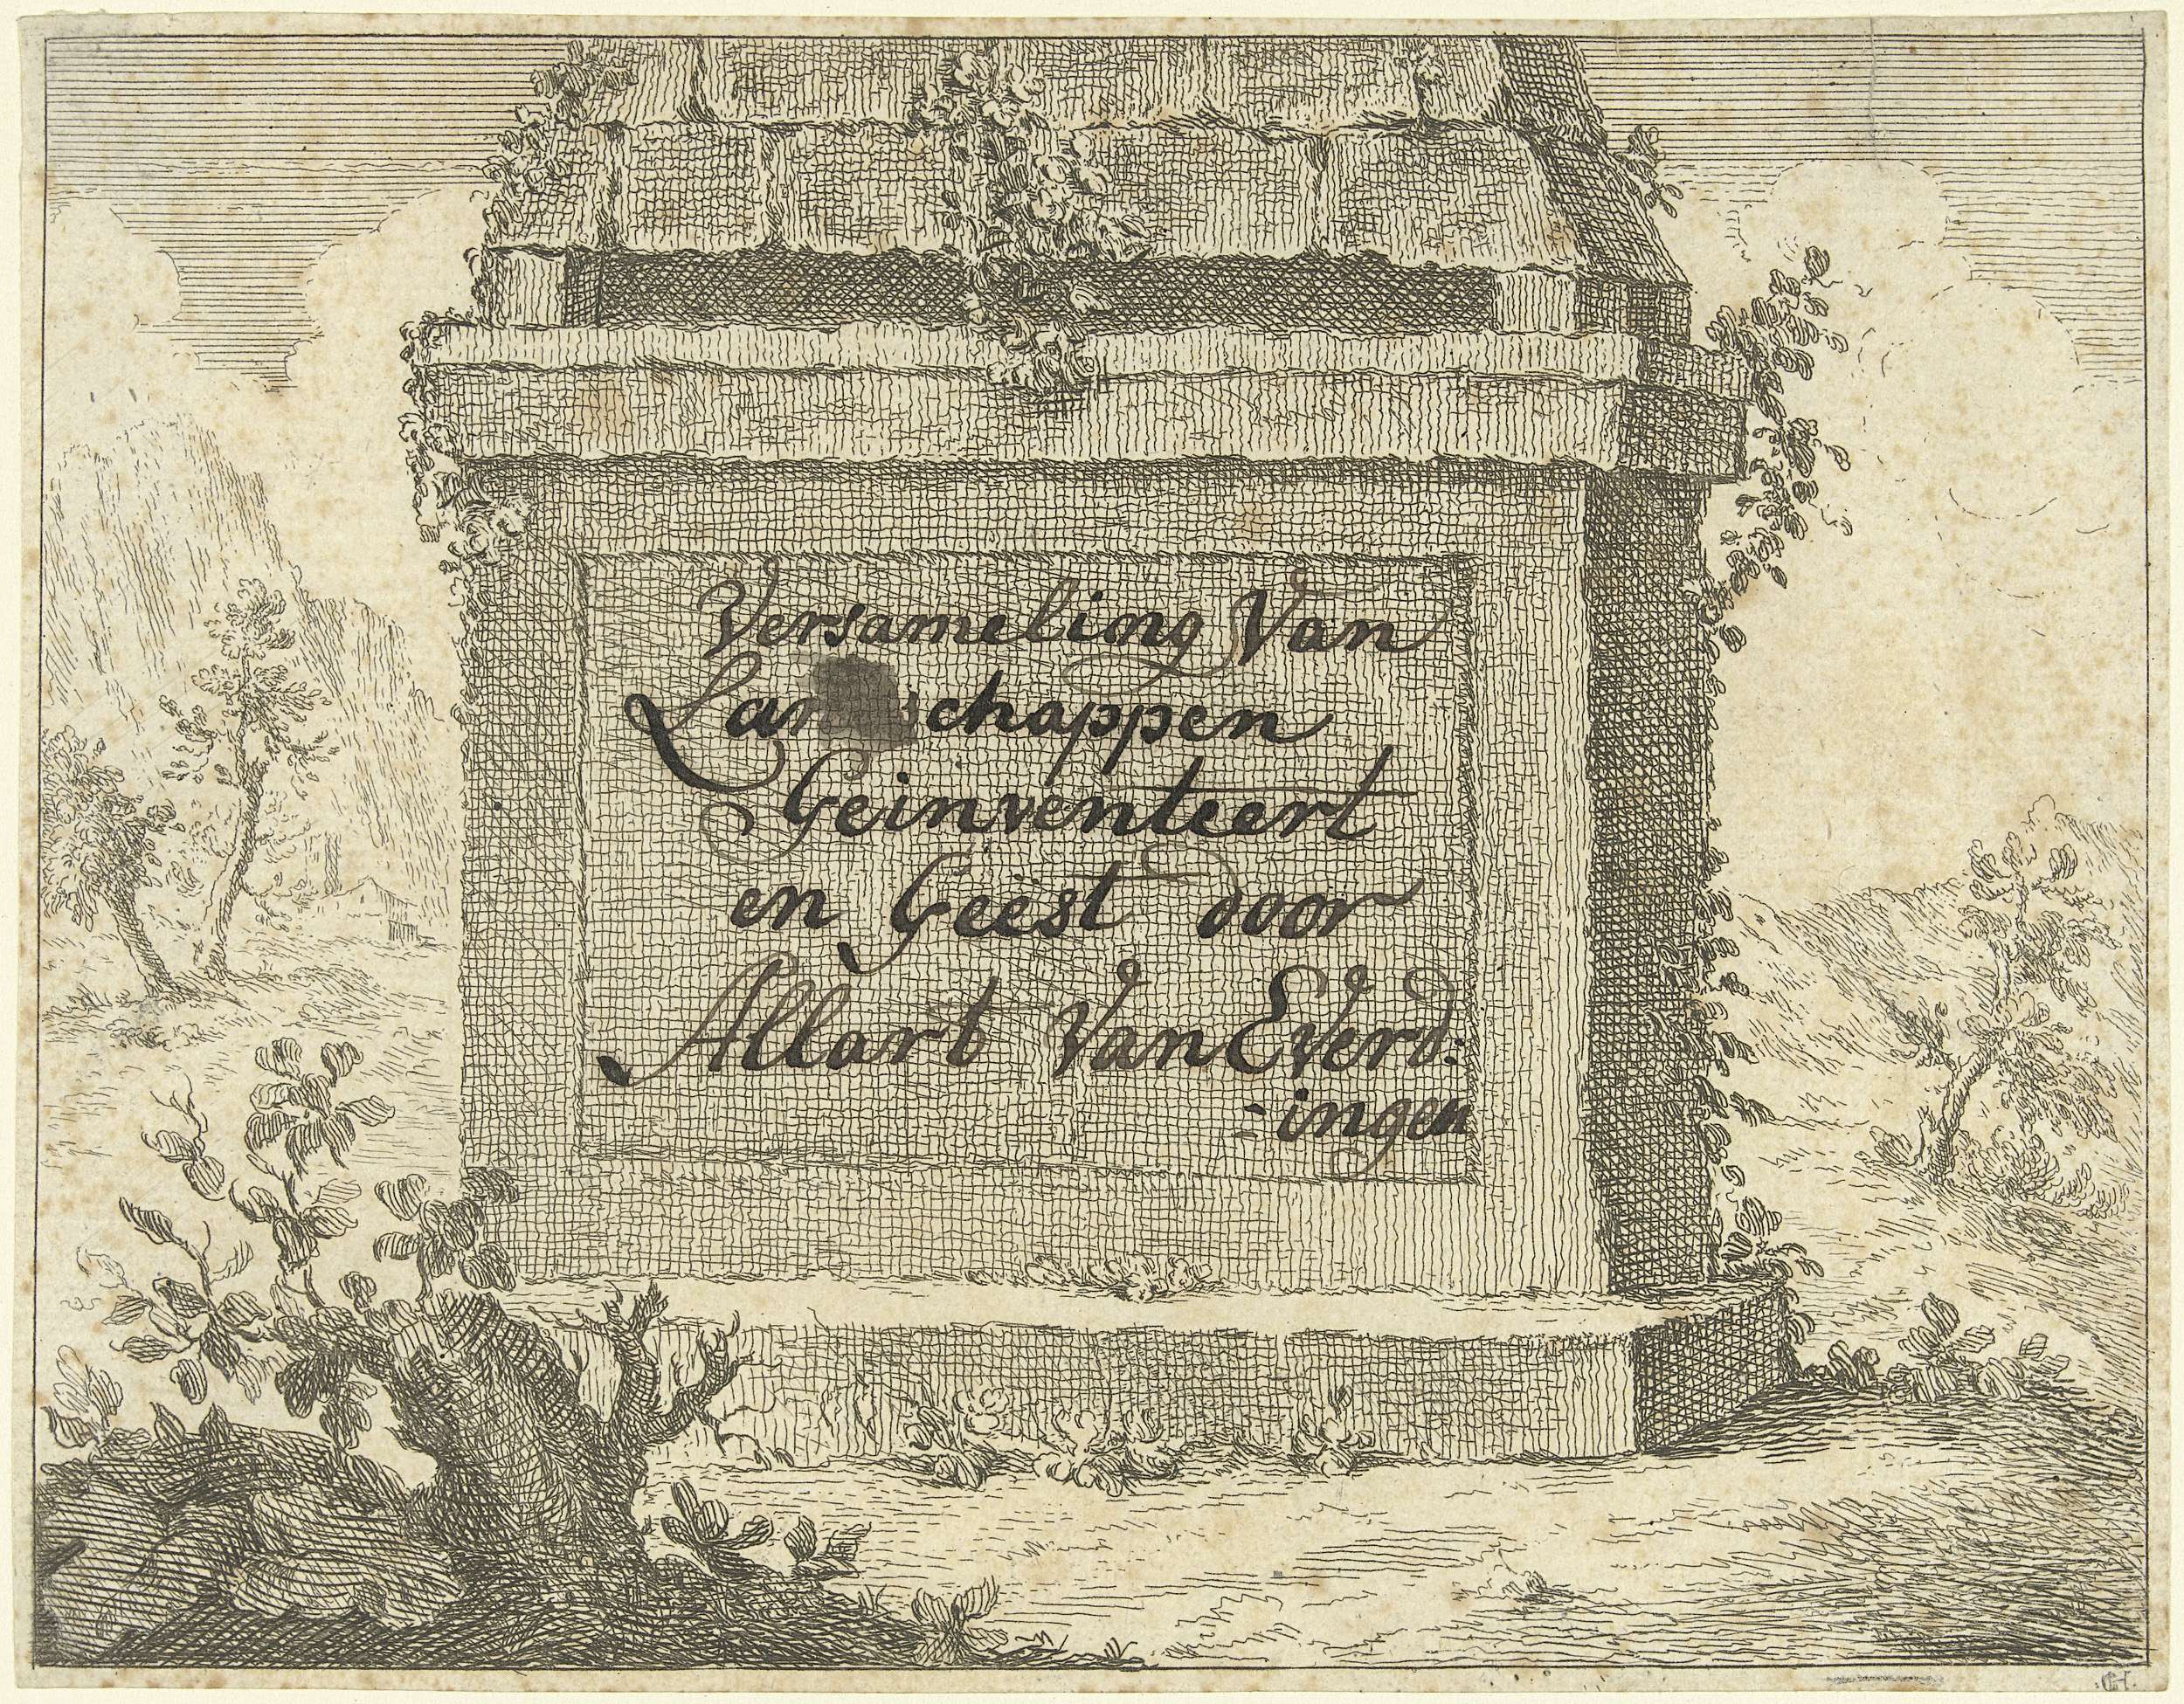 Versameling Van
Landschappen
Geinventeert
en Geëst door
Allart Van Everd:
-ingen